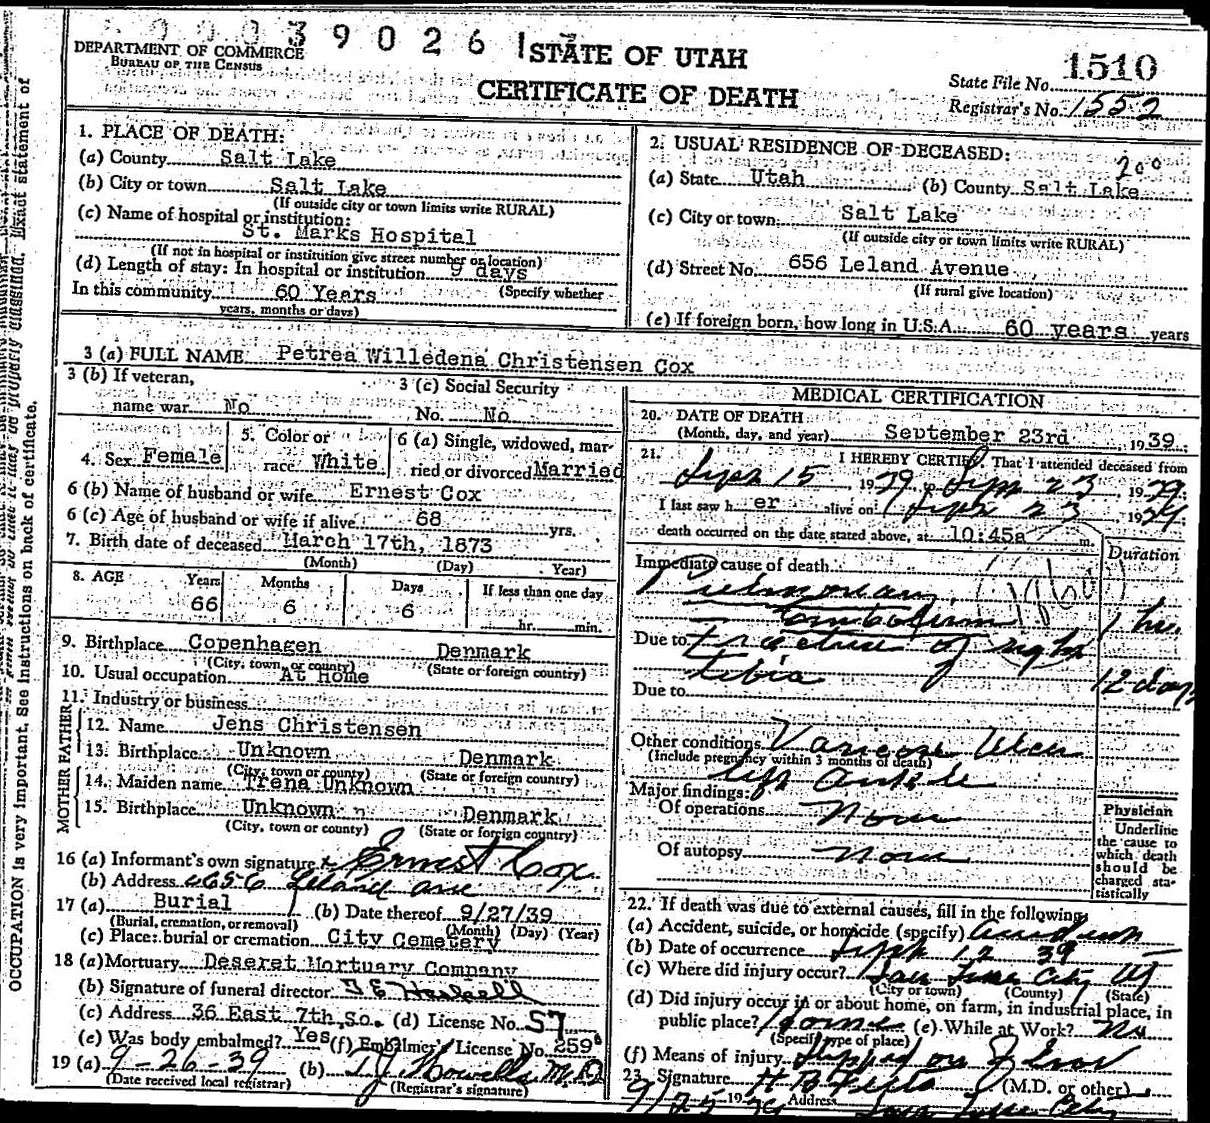 39026
DEPARTMENT OF COMMERCE
BUREAU OF THE CENSUS
STATE OF UTAH
CERTIFICATE OF DEATH
State File No. 1510
Registrar's No. 1552
1. PLACE OF DEATH:
(a) County Salt Lake
(b) City or town Salt Lake
(If outside city or town limits write RURAL)
(c) Name of hospital or institution:
St. Marks Hospital
(If not in hospital or institution give street number or location)
(d) Length of stay: In hospital or institution 9 days
In this community 60 Years (Specify whether
years, months or days)
2. USUAL RESIDENCE OF DECEASED:
200
(a) State Utah (b) County Salt Lake
(c) City or town Salt Lake
(If outside city or town limits write RURAL)
(d) Street No. 656 Leland Avenue
(If rural give location)
(e) If foreign born, how long in U.S.A. 60 years years
3 (a) FULL NAME Petrea Willedena Christensen Cox
3 (b) If veteran,
name war No
3 (c) Social Security
No. No
4. Sex Female
5. Color or
race White
6 (a) Single, widowed, mar-
ried or divorced Married
6 (b) Name of husband or wife Ernest Cox
6 (c) Age of husband or wife if alive 68 yrs.
7. Birth date of deceased March 17th, 1873
(Month) (Day) Year)
8. AGE Years Months Days If less than one day
66 6 6 hr. min.
9. Birthplace Copenhagen Denmark
(City, town, or county) (State or foreign country)
10. Usual occupation At Home
11. Industry or business
FATHER
12. Name Jens Christensen
13. Birthplace Unknown Denmark
(City, town or county) (State or foreign country)
MOTHER
14. Maiden name Trena Unknown
15. Birthplace Unknown Denmark
(City, town or county) (State or foreign country)
16 (a) Informant's own signature Ernest Cox
(b) Address 656 Leland ave
17 (a) Burial (b) Date thereof 9/27/39
(Burial, cremation, or removal) (Month) (Day) (Year)
(c) Place: burial or cremation City Cemetery
18 (a) Mortuary Deseret Mortuary Company
(b) Signature of funeral director
(c) Address 36 East 7th So. (d) License No. 57
(e) Was body embalmed? Yes (f) Embalmer's License No. 259
19 (a) 9-26-39 (b) T.J. Howells M.D.
(Date received local registrar) (Registrar's signature)
MEDICAL CERTIFICATION
20. DATE OF DEATH
(Month, day, and year) September 23rd 1939
21. I HEREBY CERTIFY, That I attended deceased from
Sept 15 1939 to Sept 23 1939
I last saw her alive on Sept 23 1939
death occurred on the date stated above, at 10:45a m.
Duration
Immediate cause of death
Pulmonary
Embolism 1 hr.
Due to Fracture of right
tibia 12 days
Due to
Other conditions Varicose Ulcer
(Include pregnancy within 3 months of death)
left ankle
Major findings:
Of operations None
Of autopsy None
Physician
Underline
the cause to
which death
should be
charged sta-
tistically
22. If death was due to external causes, fill in the following
(a) Accident, suicide, or homicide (specify) Accident
(b) Date of occurrence Sept 12 39
(c) Where did injury occur? Salt Lake City Ut
(City or town) (County) (State)
(d) Did injury occur in or about home, on farm, in industrial place, in
public place? Home (e) While at Work? No
(Specify type of place)
(f) Means of injury Slipped on floor
23. Signature (M.D. or other)
9/25 1939 Address Salt Lake City
OCCUPATION is very important. See instructions on back of certificate.
properly classified. Exact statement of